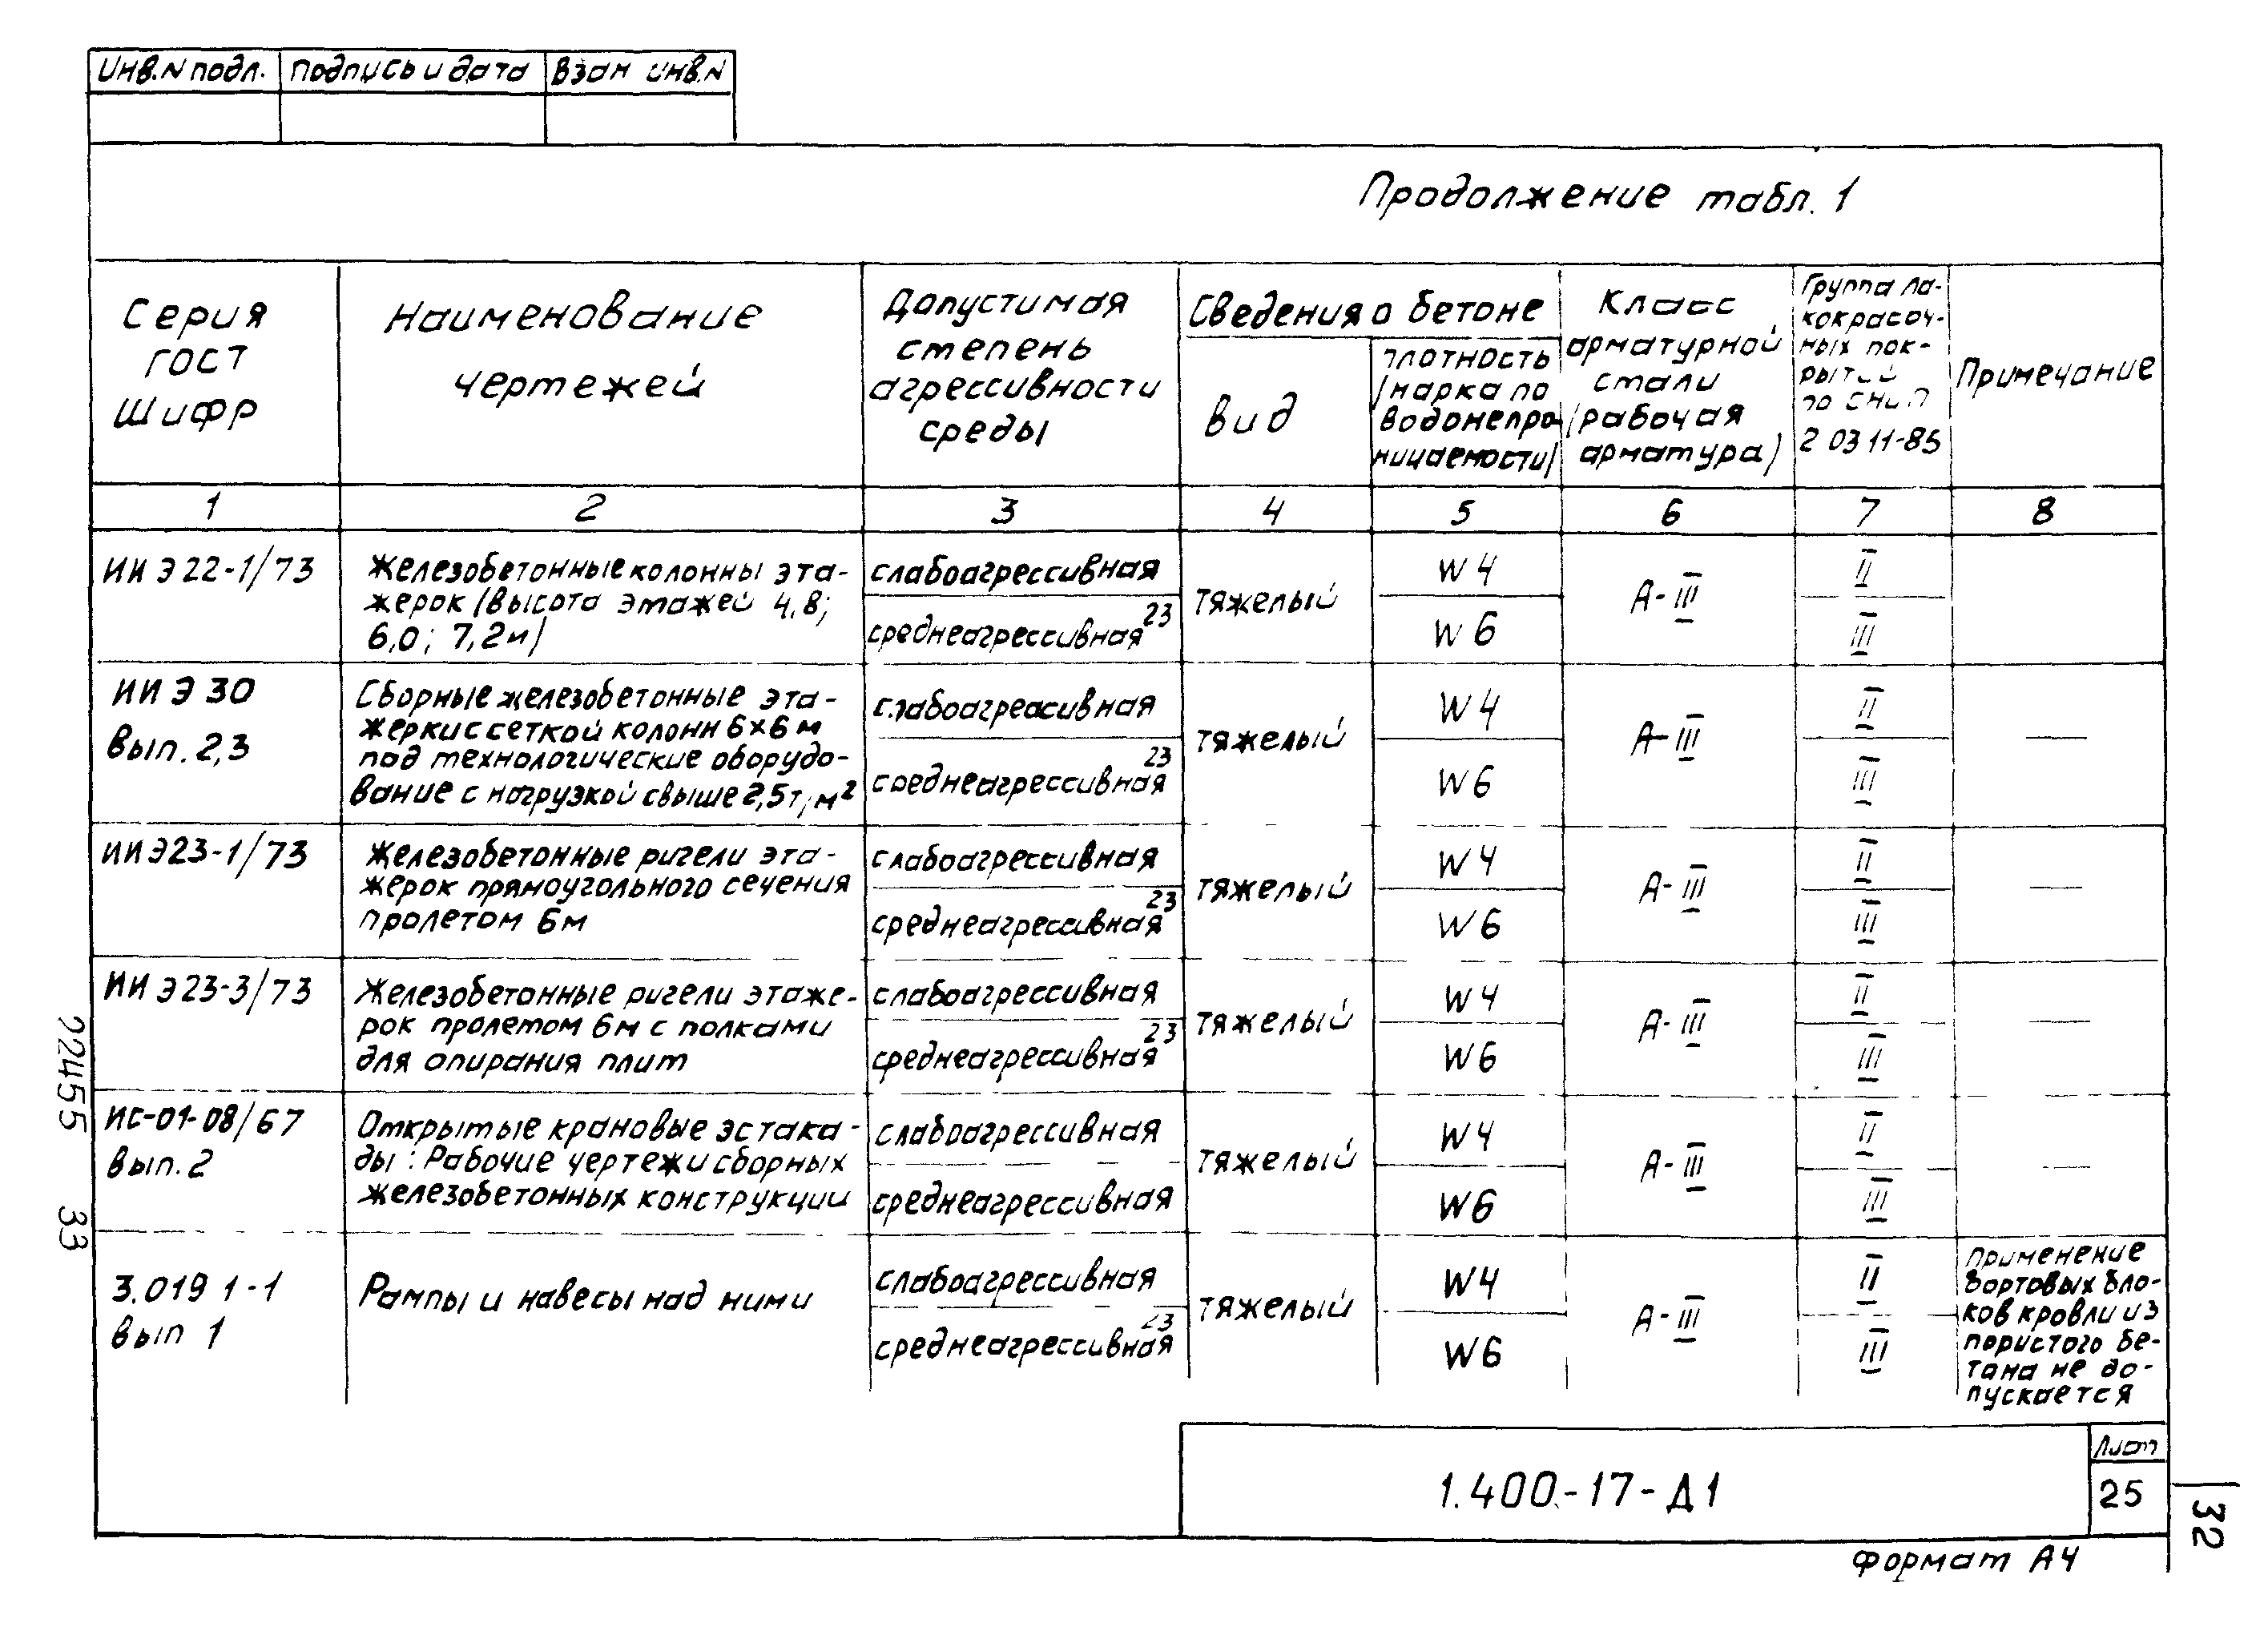 Инв.N подл. Подпись и дата Взам инв.N
Продолжение табл. 1
Серия
ГОСТ
Шифр
Наименование
чертежей
Допустимая
степень
агрессивности
среды
Сведения о бетоне
вид
плотность
(марка по
водонепро-
ницаемости)
Класс
арматурной
стали
(рабочая
арматура)
Группа ла-
кокрасоч-
ных пок-
рытий
по СНиП
2 03 11-85
Примечание
1 2 3 4 5 6 7 8
ИИ Э 22-1/73
Железобетонные колонны эта-
жерок (высота этажей 4,8;
6,0; 7,2м)
слабоагрессивная
среднеагрессивная 23
тяжелый
W4
W6
А-III
II
III
ИИ Э 30
Вып. 2,3
Сборные железобетонные эта-
жерки с сеткой колонн 6х6 м
под технологические оборудо-
вание с нагрузкой свыше 2,5т/м²
слабоагреасивная
среднеагрессивная 23
тяжелый
W4
W6
А-III
II
III
—
ИИ Э23-1/73
Железобетонные ригели эта-
жерок прямоугольного сечения
пролетом 6м
слабоагрессивная
среднеагрессивная 23
тяжелый
W4
W6
А-III
II
III
—
ИИ Э23-3/73
Железобетонные ригели этаже-
рок пролетом 6м с полками
для опирания плит
слабоагрессивная
среднеагрессивная 23
тяжелый
W4
W6
А-III
II
III
—
ИС-01-08/67
Вып. 2
Открытые крановые эстака-
ды : Рабочие чертежи сборных
железобетонных конструкции
слабоагрессивная
среднеагрессивная
тяжелый
W4
W6
А-III
II
III
—
3.019 1-1
Вып 1
Рампы и навесы над ними
слабоагрессивная
среднеагрессивная 23
тяжелый
W4
W6
А-III
II
III
Применение
бортовых бло-
ков кровли из
пористого бе-
тона не до-
пускается
1.400.-17-Д1
Лист
25
Формат А4
22455 33
32